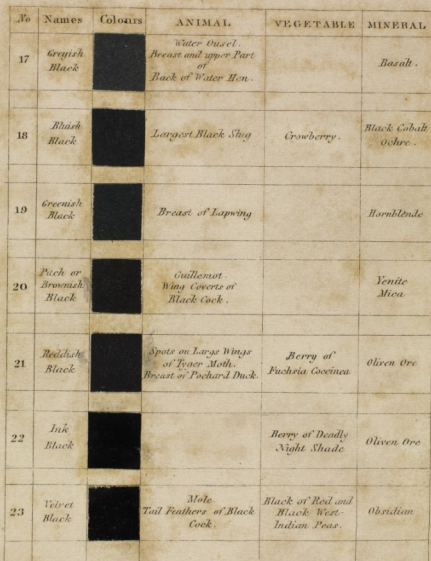 No Names Colours ANIMAL VEGETABLE MINERAL
17 Greyish Black
Water Ousel.
Breast and upper Part
of
Back of Water Hen.
Basalt.
18 Bluish Black
Largest Black Slug
Crowberry.
Black Cobalt
Ochre.
19 Greenish Black
Breast of Lapwing
Hornblende
20 Pitch or
Brownish
Black
Guillemot
Wing Coverts of
Black Cock.
Yenite
Mica
21 Reddish
Black
Spots on Large Wings
of Tyger Moth.
Breast of Pochard Duck.
Berry of
Fuchsia Coccinea
Oliven Ore
22 Ink
Black
Berry of Deadly
Night Shade
Oliven Ore
23 Velvet
Black
Mole
Tail Feathers of Black
Cock.
Black of Red and
Black West-
Indian Peas.
Obsidian